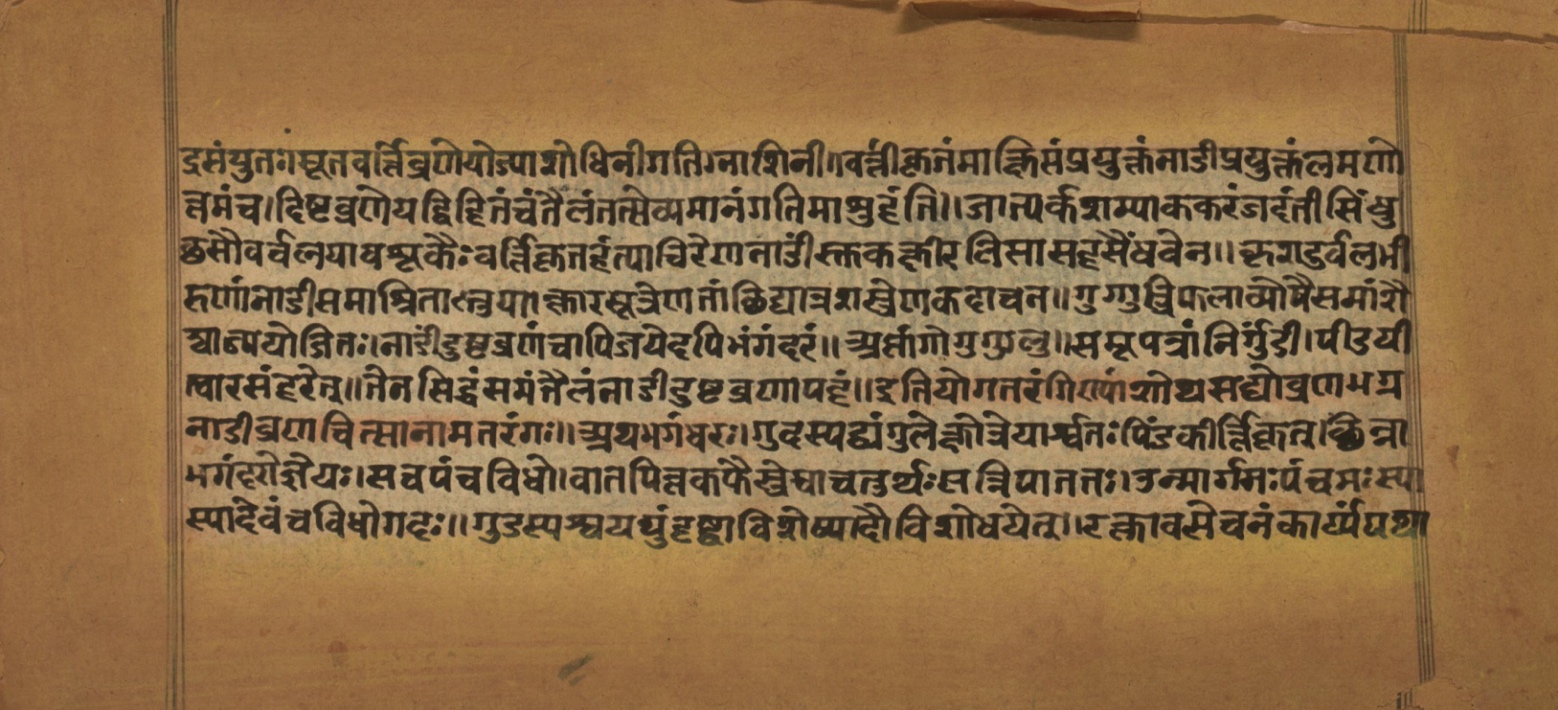 द्रसंयुतः। सूतवर्त्तिव्रणेयोज्याशोधिनीगतिनाशिनी। वर्त्तीकृतंमाक्षिसंप्रयुक्तंनाडीप्रयुक्तंलमणो
त्तमंच। दिष्टव्रणेयद्विहितंचंतैलंतत्सेव्यमानंगतिमाशुहंति।। जात्यर्कशम्पाककरंजदंतीसिंधु
छसौवर्वलयावशूकैः वर्त्तिकृतहंत्याचिरेणनाडींस्क्तकक्षीर निसासहसैंधवेन।। कृशदुर्वलभी
रुणांनाडीसमाश्रिताण्तुया। क्षारसूत्रेणतांछिद्यान्नशस्त्रेणकदाचन।। गुग्गुत्रिफलाव्योषैसमांशै
श्चाज्ययोजितः। नाडीदुष्टव्रणंचापिजयेदपिभंगंदरं।। अर्त्तागोगुग्गुलु।। समूपत्रांनिर्गुंडी। पीडयी
त्वारसंहरेत्।। तेनसिद्धंसमंतैलंनाडीदुष्टव्रणापहं।। इतियोगतरंगिण्यांशोथसद्योव्रणभग्न
नाडीव्रणचित्सानामतरंगः।। अथभगंधरः। गुदस्यद्व्यंगुलेक्षेत्रेयार्श्वतः पिंडकीर्त्तिकृत्। छिन्ना
भगंदरोज्ञेयः। सचपंचविधो। वातपित्तकफैस्त्रेधाचतुर्थः सन्निपाततः। उन्मार्गगः पंचमः स्या
स्यादेवंचविधोगदः।। गुडस्यश्वयथुंदृष्ट्वाविशोष्यादौविशोधयेत्।। रक्तावसेचनंकार्य्यंयथा